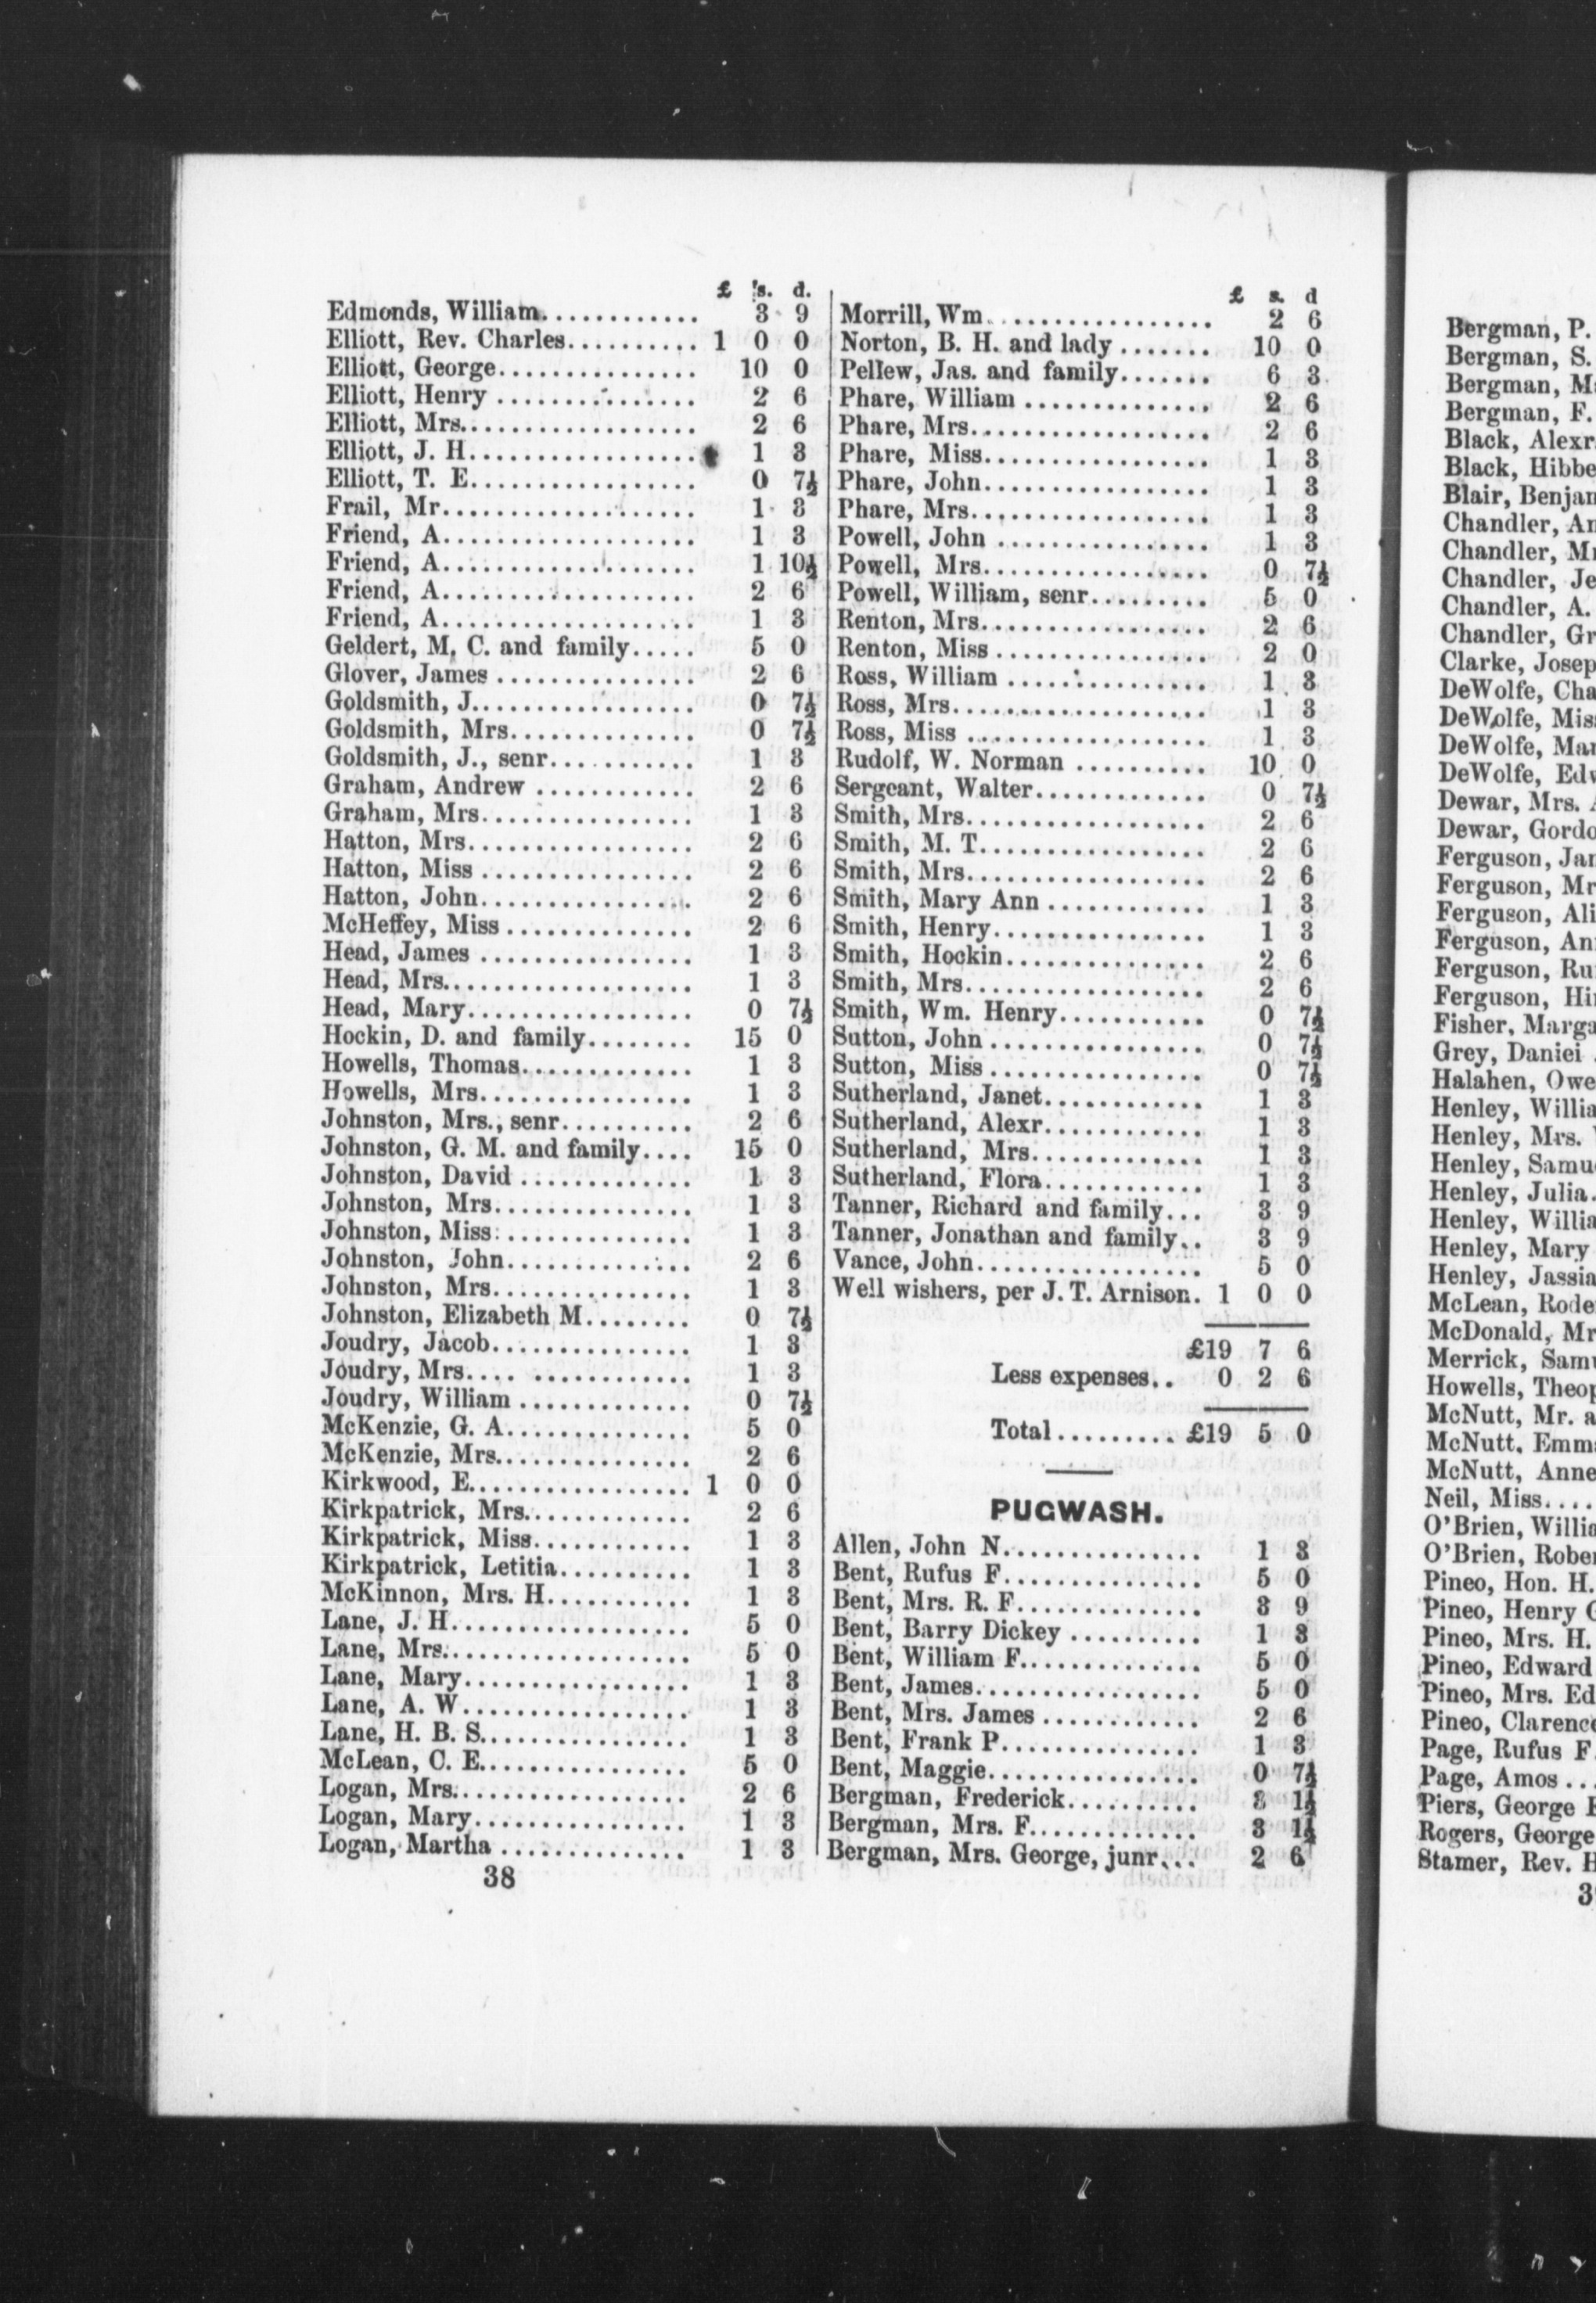 £ s. d.
Edmonds, William............ 3 9
Elliott, Rev. Charles.......... 1 0 0
Elliott, George............... 10 0
Elliott, Henry ............... 2 6
Elliott, Mrs.................. 2 6
Elliott, J. H.................. 1 3
Elliott, T. E.................. 0 7½
Frail, Mr.................... 1 3
Friend, A.................... 1 3
Friend, A.................... 1 10½
Friend, A.................... 2 6
Friend, A.................... 1 3
Geldert, M. C. and family..... 5 0
Glover, James ............... 2 6
Goldsmith, J................. 0 7½
Goldsmith, Mrs.............. 0 7½
Goldsmith, J., senr........... 1 3
Graham, Andrew ............ 2 6
Graham, Mrs................ 1 3
Hatton, Mrs................. 2 6
Hatton, Miss ................ 2 6
Hatton, John................ 2 6
McHeffey, Miss .............. 2 6
Head, James ................ 1 3
Head, Mrs................... 1 3
Head, Mary................. 0 7½
Hockin, D. and family........ 15 0
Howells, Thomas............. 1 3
Howells, Mrs................ 1 3
Johnston, Mrs., senr.......... 2 6
Johnston, G. M. and family.... 15 0
Johnston, David ............. 1 3
Johnston, Mrs............... 1 3
Johnston, Miss............... 1 3
Johnston, John.............. 2 6
Johnston, Mrs............... 1 3
Johnston, Elizabeth M........ 0 7½
Joudry, Jacob............... 1 3
Joudry, Mrs.... ............ 1 3
Joudry, William ............. 0 7½
McKenzie, G. A.............. 5 0
McKenzie, Mrs............... 2 6
Kirkwood, E................. 1 0 0
Kirkpatrick, Mrs............. 2 6
Kirkpatrick, Miss............ 1 3
Kirkpatrick, Letitia.......... 1 3
McKinnon, Mrs. H........... 1 3
Lane, J. H................... 5 0
Lane, Mrs................... 5 0
Lane, Mary................. 1 3
Lane, A. W................. 1 3
Lane, H. B. S................ 1 3
McLean, C. E................ 5 0
Logan, Mrs.................. 2 6
Logan, Mary................ 1 3
Logan, Martha .............. 1 3
38
£ s. d
Morrill, Wm................. 2 6
Norton, B. H. and lady ....... 10 0
Pellew, Jas. and family....... 6 3
Phare, William .............. 2 6
Phare, Mrs.................. 2 6
Phare, Miss................. 1 3
Phare, John................. 1 3
Phare, Mrs.................. 1 3
Powell, John ................ 1 3
Powell, Mrs................. 0 7½
Powell, William, senr......... 5 0
Renton, Mrs................. 2 6
Renton, Miss ................ 2 0
Ross, William ............... 1 3
Ross, Mrs................... 1 3
Ross, Miss .................. 1 3
Rudolf, W. Norman .......... 10 0
Sergeant, Walter............. 0 7½
Smith, Mrs.................. 2 6
Smith, M. T................. 2 6
Smith, Mrs.................. 2 6
Smith, Mary Ann ............ 1 3
Smith, Henry................ 1 3
Smith, Hockin............... 2 6
Smith, Mrs.................. 2 6
Smith, Wm. Henry........... 0 7½
Sutton, John ................ 0 7½
Sutton, Miss ................ 0 7½
Sutherland, Janet............ 1 3
Sutherland, Alexr............ 1 3
Sutherland, Mrs............. 1 3
Sutherland, Flora............ 1 3
Tanner, Richard and family... 3 9
Tanner, Jonathan and family.. 3 9
Vance, John................. 5 0
Well wishers, per J. T. Arnison. 1 0 0
£19 7 6
Less expenses.. 0 2 6
Total......... £19 5 0
PUGWASH.
Allen, John N............... 1 3
Bent, Rufus F............... 5 0
Bent, Mrs. R. F.............. 3 9
Bent, Barry Dickey .......... 1 3
Bent, William F............. 5 0
Bent, James................. 5 0
Bent, Mrs. James ............ 2 6
Bent, Frank P............... 1 3
Bent, Maggie................ 0 7½
Bergman, Frederick.......... 3 1½
Bergman, Mrs. F............. 3 1½
Bergman, Mrs. George, junr... 2 6
Bergman, P.
Bergman, S.
Bergman,
Bergman, F.
Black, Alexr
Black,
Blair,
Chandler,
Chandler,
Chandler,
Chandler, A.
Chandler,
Clarke,
DeWolfe,
DeWolfe,
DeWolfe,
DeWolfe,
Dewar, Mrs.
Dewar,
Ferguson,
Ferguson,
Ferguson,
Ferguson,
Ferguson,
Ferguson,
Fisher,
Grey, Daniel
Halahen,
Henley,
Henley, Mrs.
Henley,
Henley, Julia.
Henley,
Henley, Mary
Henley,
McLean,
McDonald,
Merrick,
Howells,
McNutt, Mr.
McNutt,
McNutt,
Neil, Miss....
O'Brien,
O'Brien,
Pineo, Hon. H.
Pineo, Henry
Pineo, Mrs. H.
Pineo, Edward
Pineo, Mrs.
Pineo,
Page, Rufus F
Page, Amos ...
Piers, George
Rogers, George
Stamer, Rev.